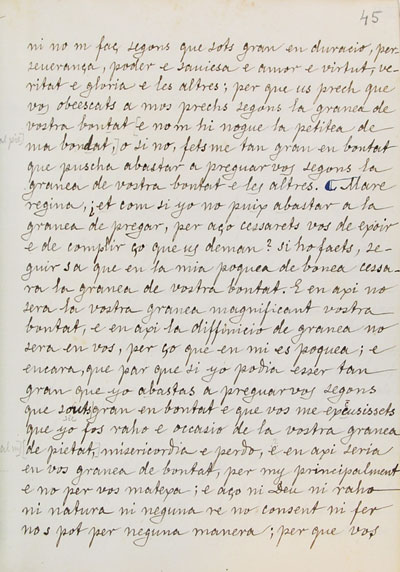 45
ni no m faç segons que sots gran en duracio, per-
severança, poder e saviesa e amor e virtut, ve-
ritat e gloria e les altres; per que us prech que
vos obeescats a mos prechs segons la granea de
vostra bontat e no m hi nogue la petitea de
ma bondat, o si no, fets me tan gran en bontat
que puscha abastar a preguar vos segons la
granea de vostra bontat e les altres. ¶ Mare
regina, ¿et com si yo no puix abastar a la
granea de pregar, per aço cessarets vos de exoir
e de complir ço que us deman? si ho facts, se-
guir s a que en la mia poquea de bonea cessa-
ra la granea de vostra bontat. E en axi no
sera la vostra granea magnificant vostra
bontat, e en axi la diffinicio de granea no
sera en vos, per ço que en mi es poquea; e
encara, que par que si yo podia esser tan
gran que yo abastas a preguar vos segons
que sots gran en bontat e que vos me exausissets
que yo fos raho e occasio de la vostra granea
de pietat, misericordia e perdo, e en axi seria
en vos granea de bontat, per my principalment
e no per vos matexa; e aço ni Deu ni raho
ni natura ni neguna re no consent ni fer
no s pot per neguna manera; per que vos